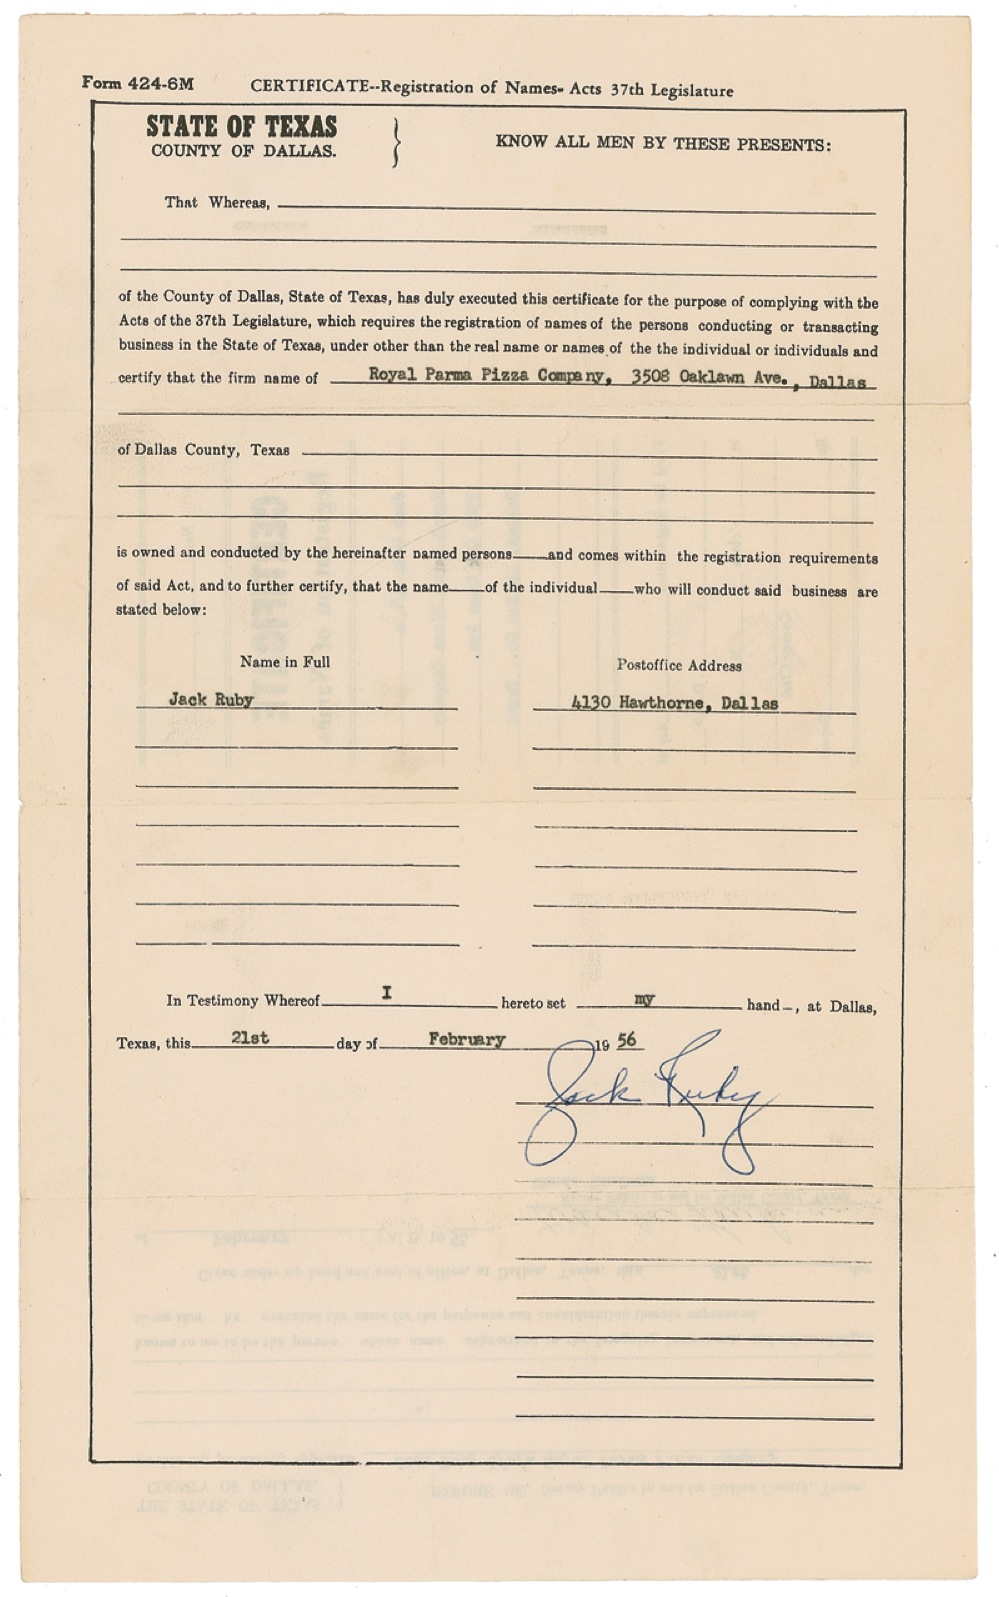 Form 424-6M CERTIFICATE--Registration of Names- Acts 37th Legislature
STATE OF TEXAS
COUNTY OF DALLAS. } KNOW ALL MEN BY THESE PRESENTS:
That Whereas,
of the County of Dallas, State of Texas, has duly executed this certificate for the purpose of complying with the
Acts of the 37th Legislature, which requires the registration of names of the persons conducting or transacting
business in the State of Texas, under other than the real name or names of the the individual or individuals and
certify that the firm name of Royal Parma Pizza Company, 3508 Oaklawn Ave., Dallas
of Dallas County, Texas
is owned and conducted by the hereinafter named persons and comes within the registration requirements
of said Act, and to further certify, that the name of the individual who will conduct said business are
stated below:
Name in Full Postoffice Address
Jack Ruby 4130 Hawthorne, Dallas
In Testimony Whereof I hereto set my hand-, at Dallas,
Texas, this 21st day of February 19 56
Jack Ruby